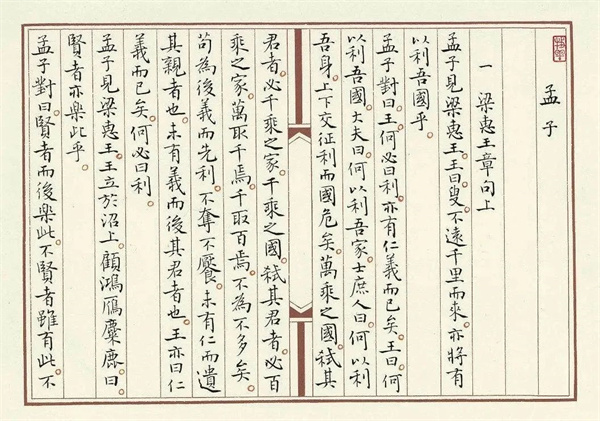 孟子
一 梁惠王章句上
孟子見梁惠王。王曰。叟。不遠千里而來。亦將有
以利吾國乎
孟子對曰。王何必曰利。亦有仁義而已矣。王曰。何
以利吾國。大夫曰。何以利吾家。士庶人曰。何以利
吾身。上下交征利而國危矣。萬乘之國。弒其
君者。必千乘之家。千乘之國。弒其君者。必百
乘之家。萬取千焉。千取百焉。不為不多矣。
苟為後義而先利。不奪不饜。未有仁而遺
其親者也。未有義而後其君者也。王亦曰仁
義而已矣。何必曰利。
孟子見梁惠王。王立於沼上。顧鴻鴈麋鹿。曰。
賢者亦樂此乎。
孟子對曰。賢者而後樂此。不賢者雖有此。不